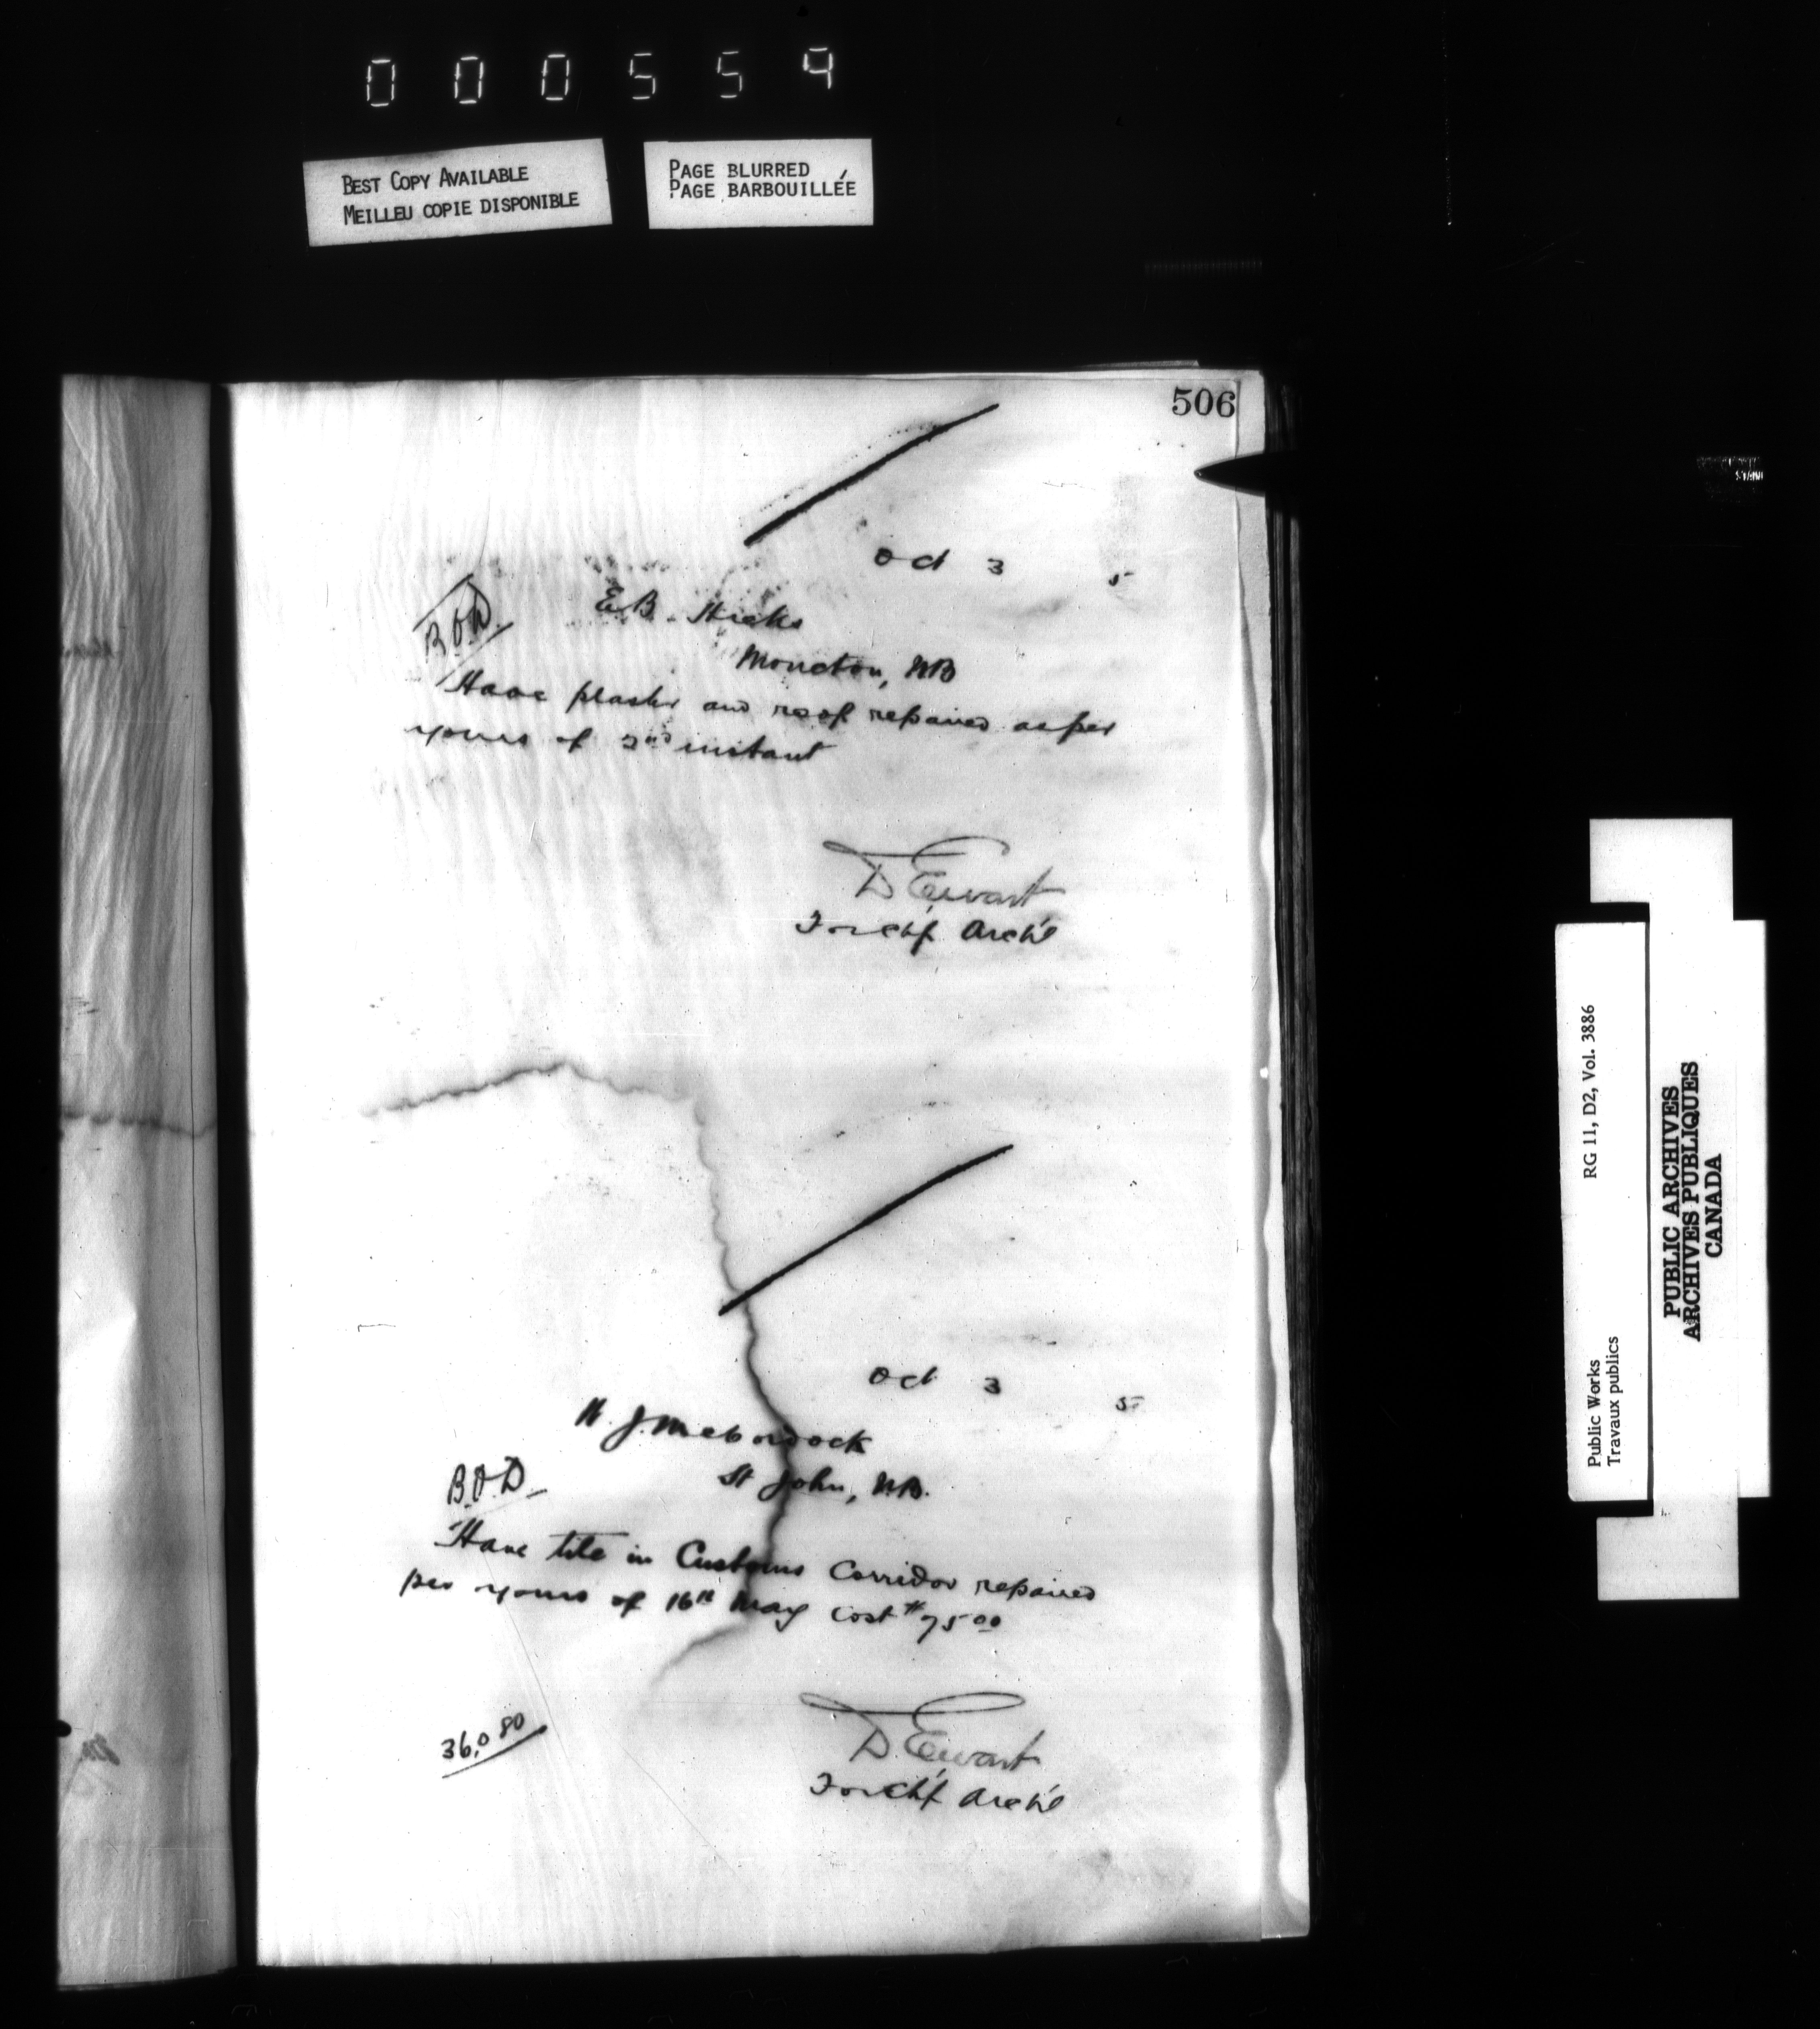 000554
BEST COPY AVAILABLE
MEILLEU COPIE DISPONIBLE
PAGE BLURRED
PAGE BARBOUILLÉE
506
Oct 3 5
B.O.D.
E.B. Hicks
Moncton, NB
Have plaster and roof repaired as per
yours of 2nd instant
D Ewart
For Chf Archt
Oct 3 5
H. J. McGordock
B.O.D.
St John, N.B.
Have tile in Customs Corridor repaired
per yours of 16th May Cost $75.00
36,080
D. Ewart
For Chf Archt
Public Works
Travaux publics
RG 11, D2, Vol. 3886
PUBLIC ARCHIVES
ARCHIVES PUBLIQUES
CANADA